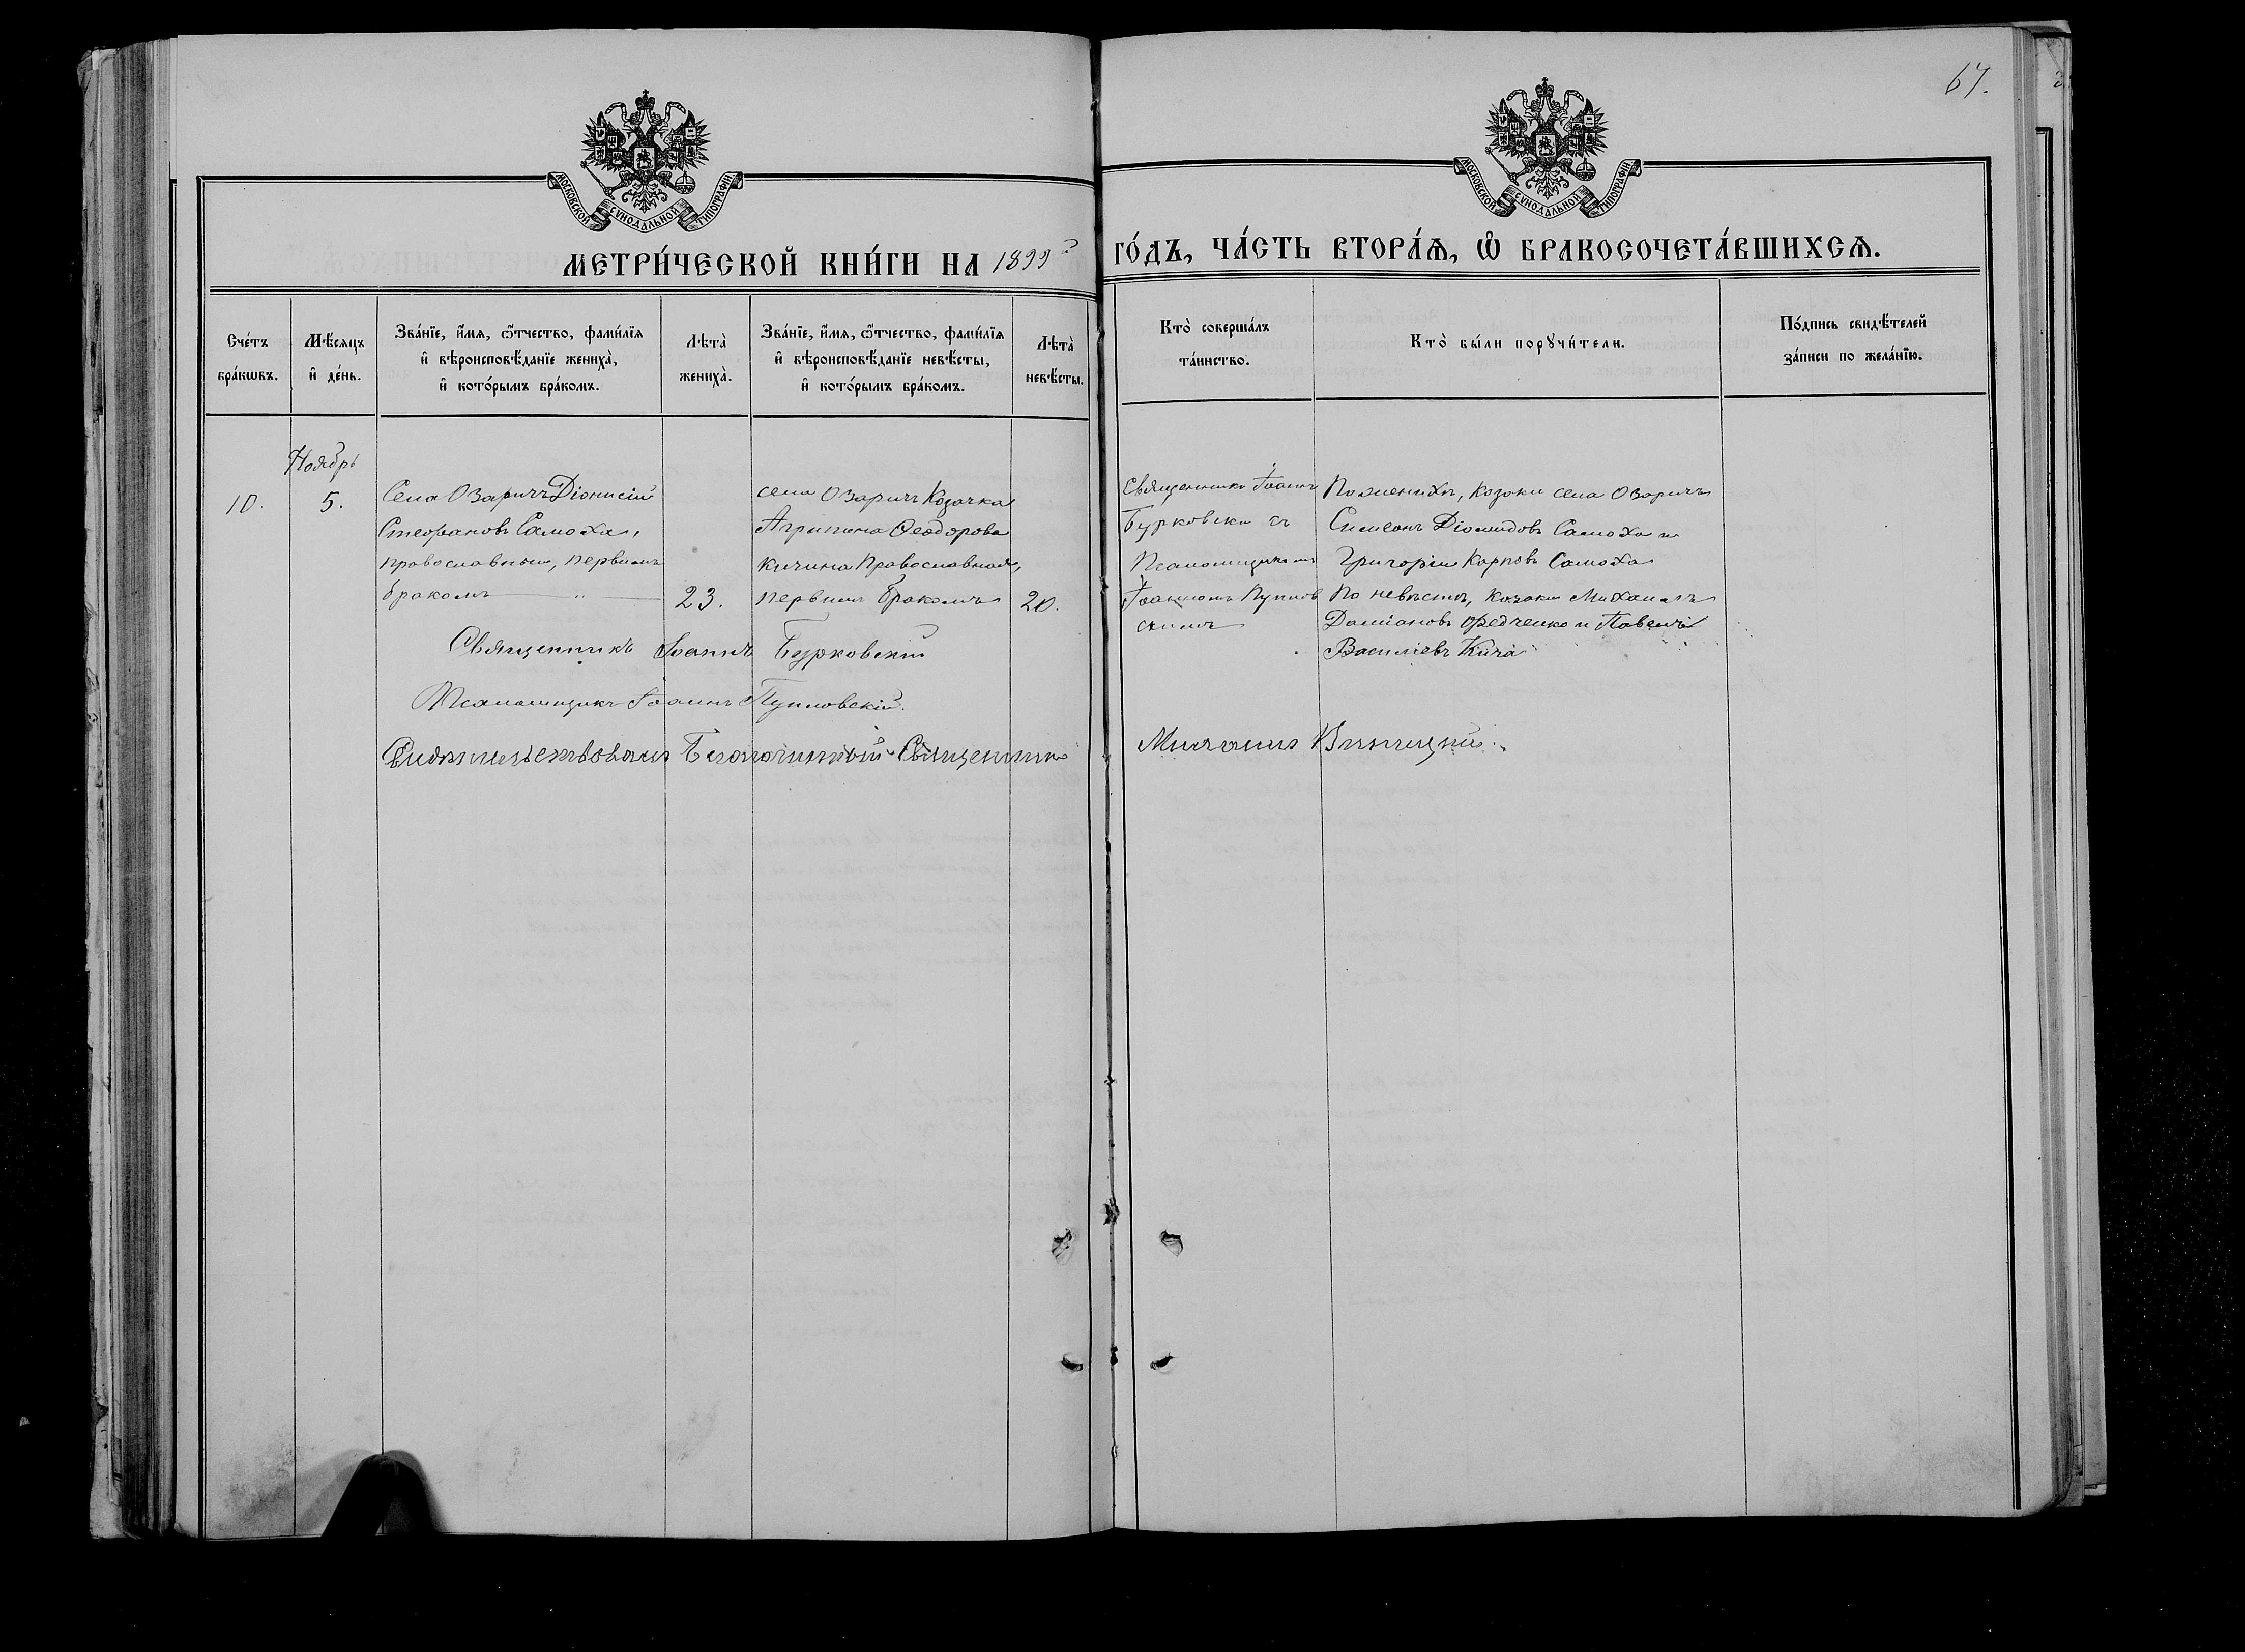 67.
МОСКОВСКОЙ СѴНОДАЛЬНОЙ ТИПОГРАФІИ
МОСКОВСКОЙ СѴНОДАЛЬНОЙ ТИПОГРАФІИ
МЕТРИ́ЧЕСКОЙ КНИ́ГИ НА 1899 ГО́ДЪ, ЧА́СТЬ ВТОРА́Я, Ѡ БРАКОСОЧЕТА́ВШИХСЯ.
Сче́тъ
бра́кωвъ.
Мѣ́сяцъ
и҆ де́нь.
Зва́нїе, и҆́мя, ѻ҆́тчество, фами́лїя
и҆ вѣроисповѣ́данїе жениха̀,
и҆ кото́рымъ бра́комъ.
Лѣта̀
жениха̀.
Зва́нїе, и҆́мя, ѻ҆́тчество, фами́лїя
и҆ вѣроисповѣ́данїе невѣ́сты,
и҆ кото́рымъ бра́комъ.
Лѣта̀
невѣ́сты.
Кто̀ соверша́лъ
та́инство.
Кто̀ бы́ли порꙋчи́тели.
По́дпись свидѣ́телей
за́писи по жела́нїю.
Ноябрь
10.
5.
Села Озаричъ Діонисій
Стефановъ Самоха,
православный, первымъ
бракомъ
23.
села Озаричъ Козачка
Агрипина Феодорова
Кичина Православная,
первымъ бракомъ
20.
Священникъ Іоаннъ
Бурковскій съ
Псаломщикомъ
Іоанномъ Пуплов
скимъ
По женихѣ, Козаки села Озаричъ
Симеонъ Діомидовъ Самоха и
Григорій Карповъ Самоха
По невѣстѣ, Козаки Михаилъ
Даміановъ Федченко и Павелъ
Василіевъ Кича
Священникъ Іоаннъ Бурковскій
Псаломщикъ Іоаннъ Пупловскій.
Свидѣтельствовалъ Благочинный Священникъ Михаилъ